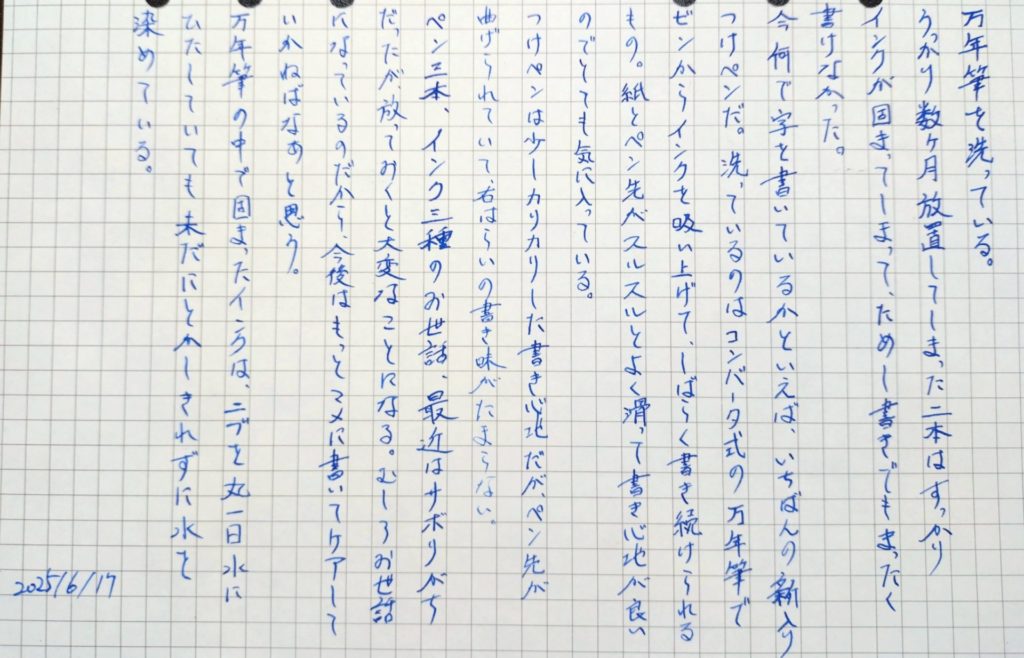 万年筆を洗っている。
うっかり数ヶ月放置してしまった二本はすっかり
インクが固まってしまって、ためし書きでもまったく
書けなかった。
今何で字を書いているかといえば、いちばんの新入り
つけペンだ。洗っているのはコンバータ式の万年筆で
ビンからインクを吸い上げて、しばらく書き続けられる
もの。紙とペン先がスルスルとよく滑って書き心地が良い
のでとても気に入っている。
つけペンは少しカリカリした書き心地だが、ペン先が
曲げられていて、右はらいの書き味がたまらない。
ペン三本、インク三種のお世話、最近はサボりがち
だったが、放っておくと大変なことになる。むしろお世話
になっているのだから、今後はもっとマメに書いてケアして
いかねばなあと思う。
万年筆の中で固まったインクは、ニブを丸一日水に
ひたしていても未だにとかしきれずに水を
染めている。
2025/6/17